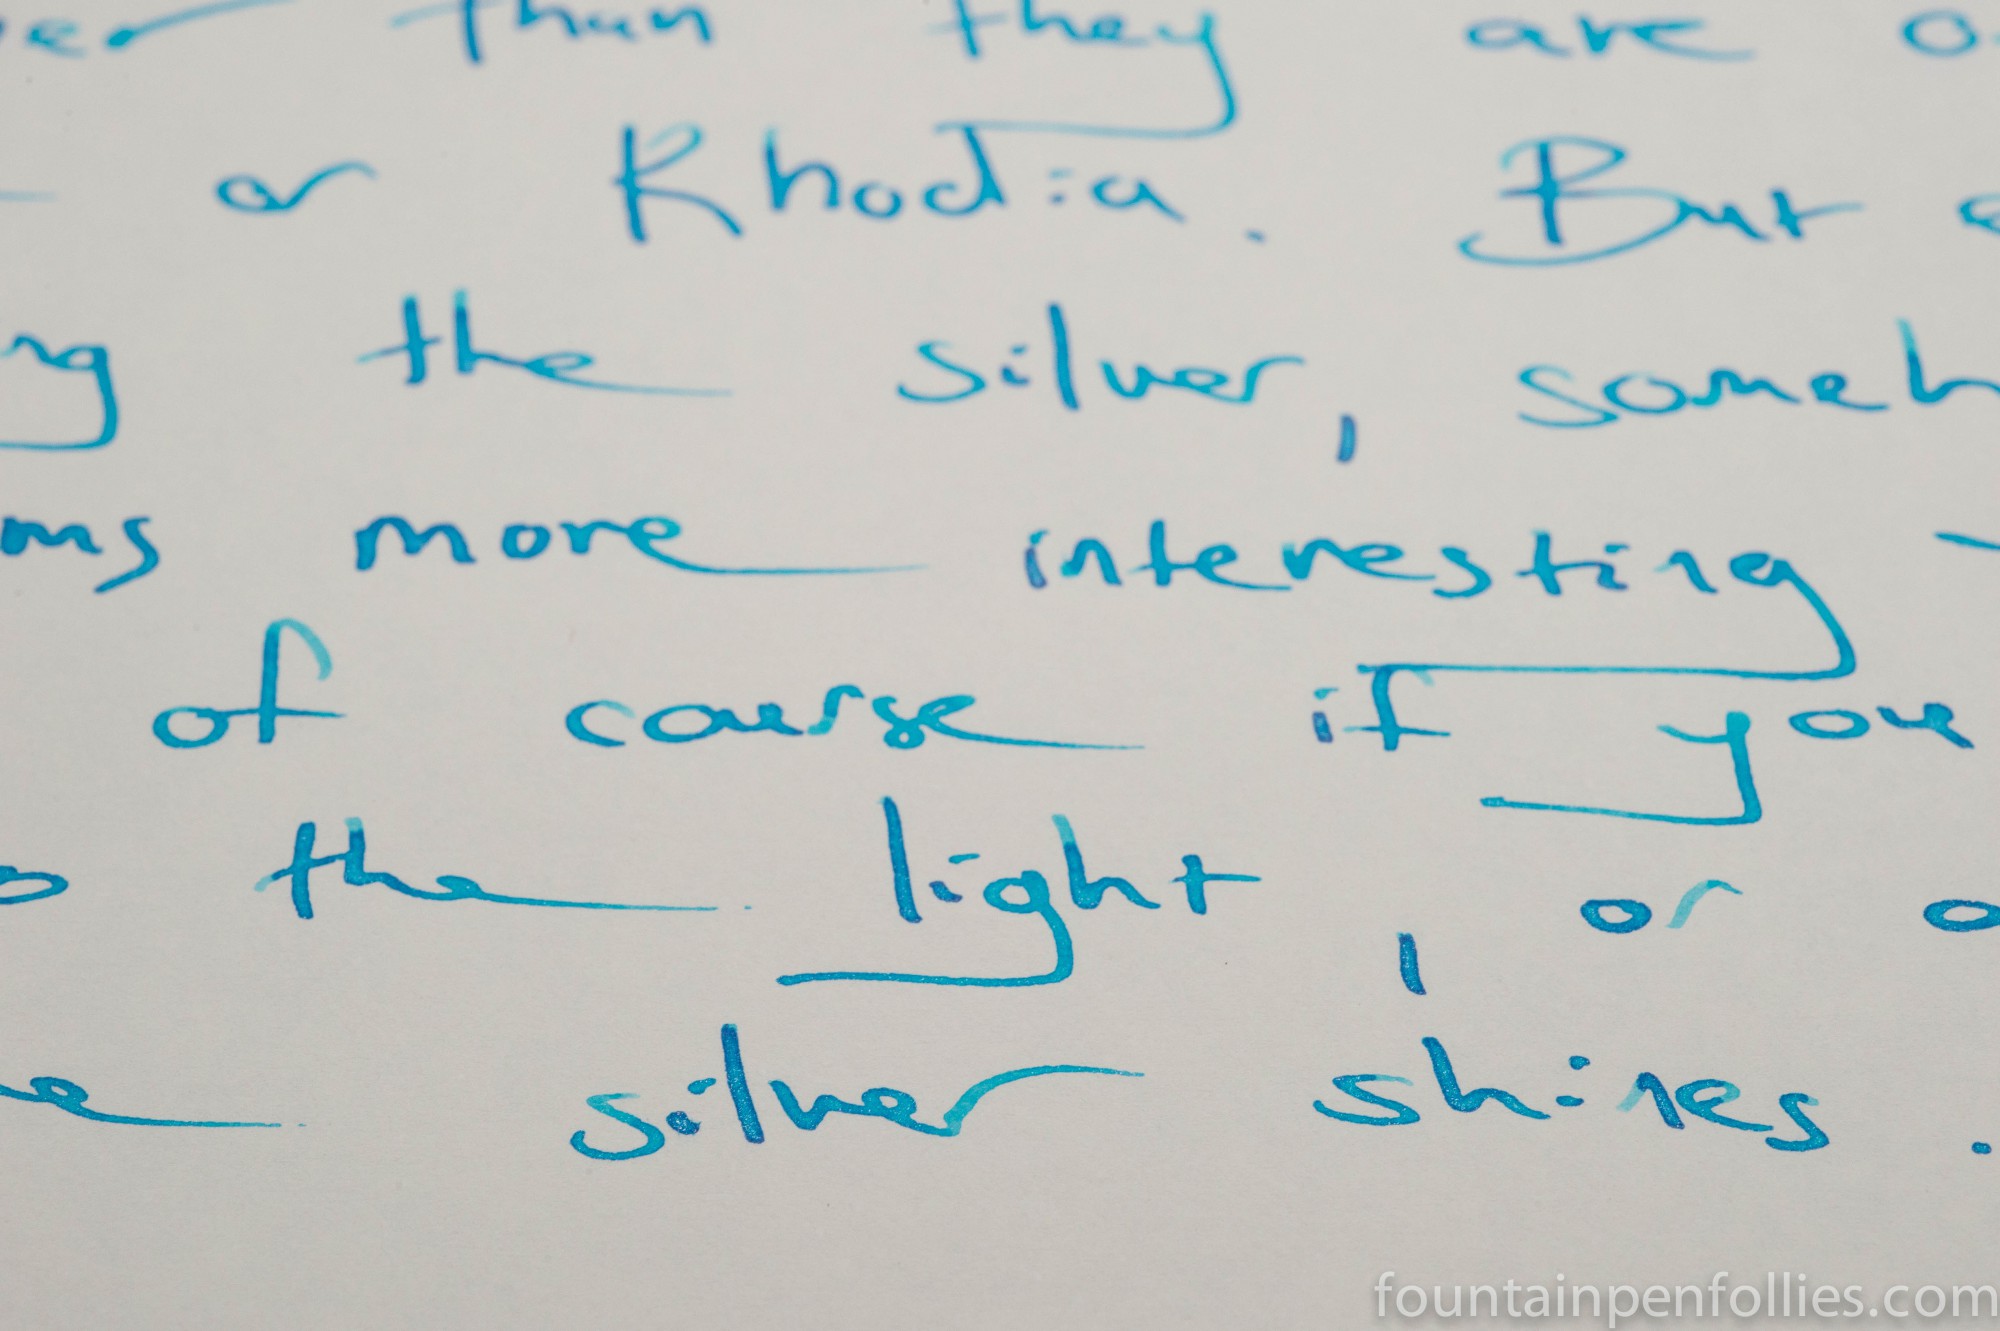 than they are
or Rhodia. But
the silver, someh
more interesting
of course if you
the light, or
silver shines.
fountainpenfollies.com